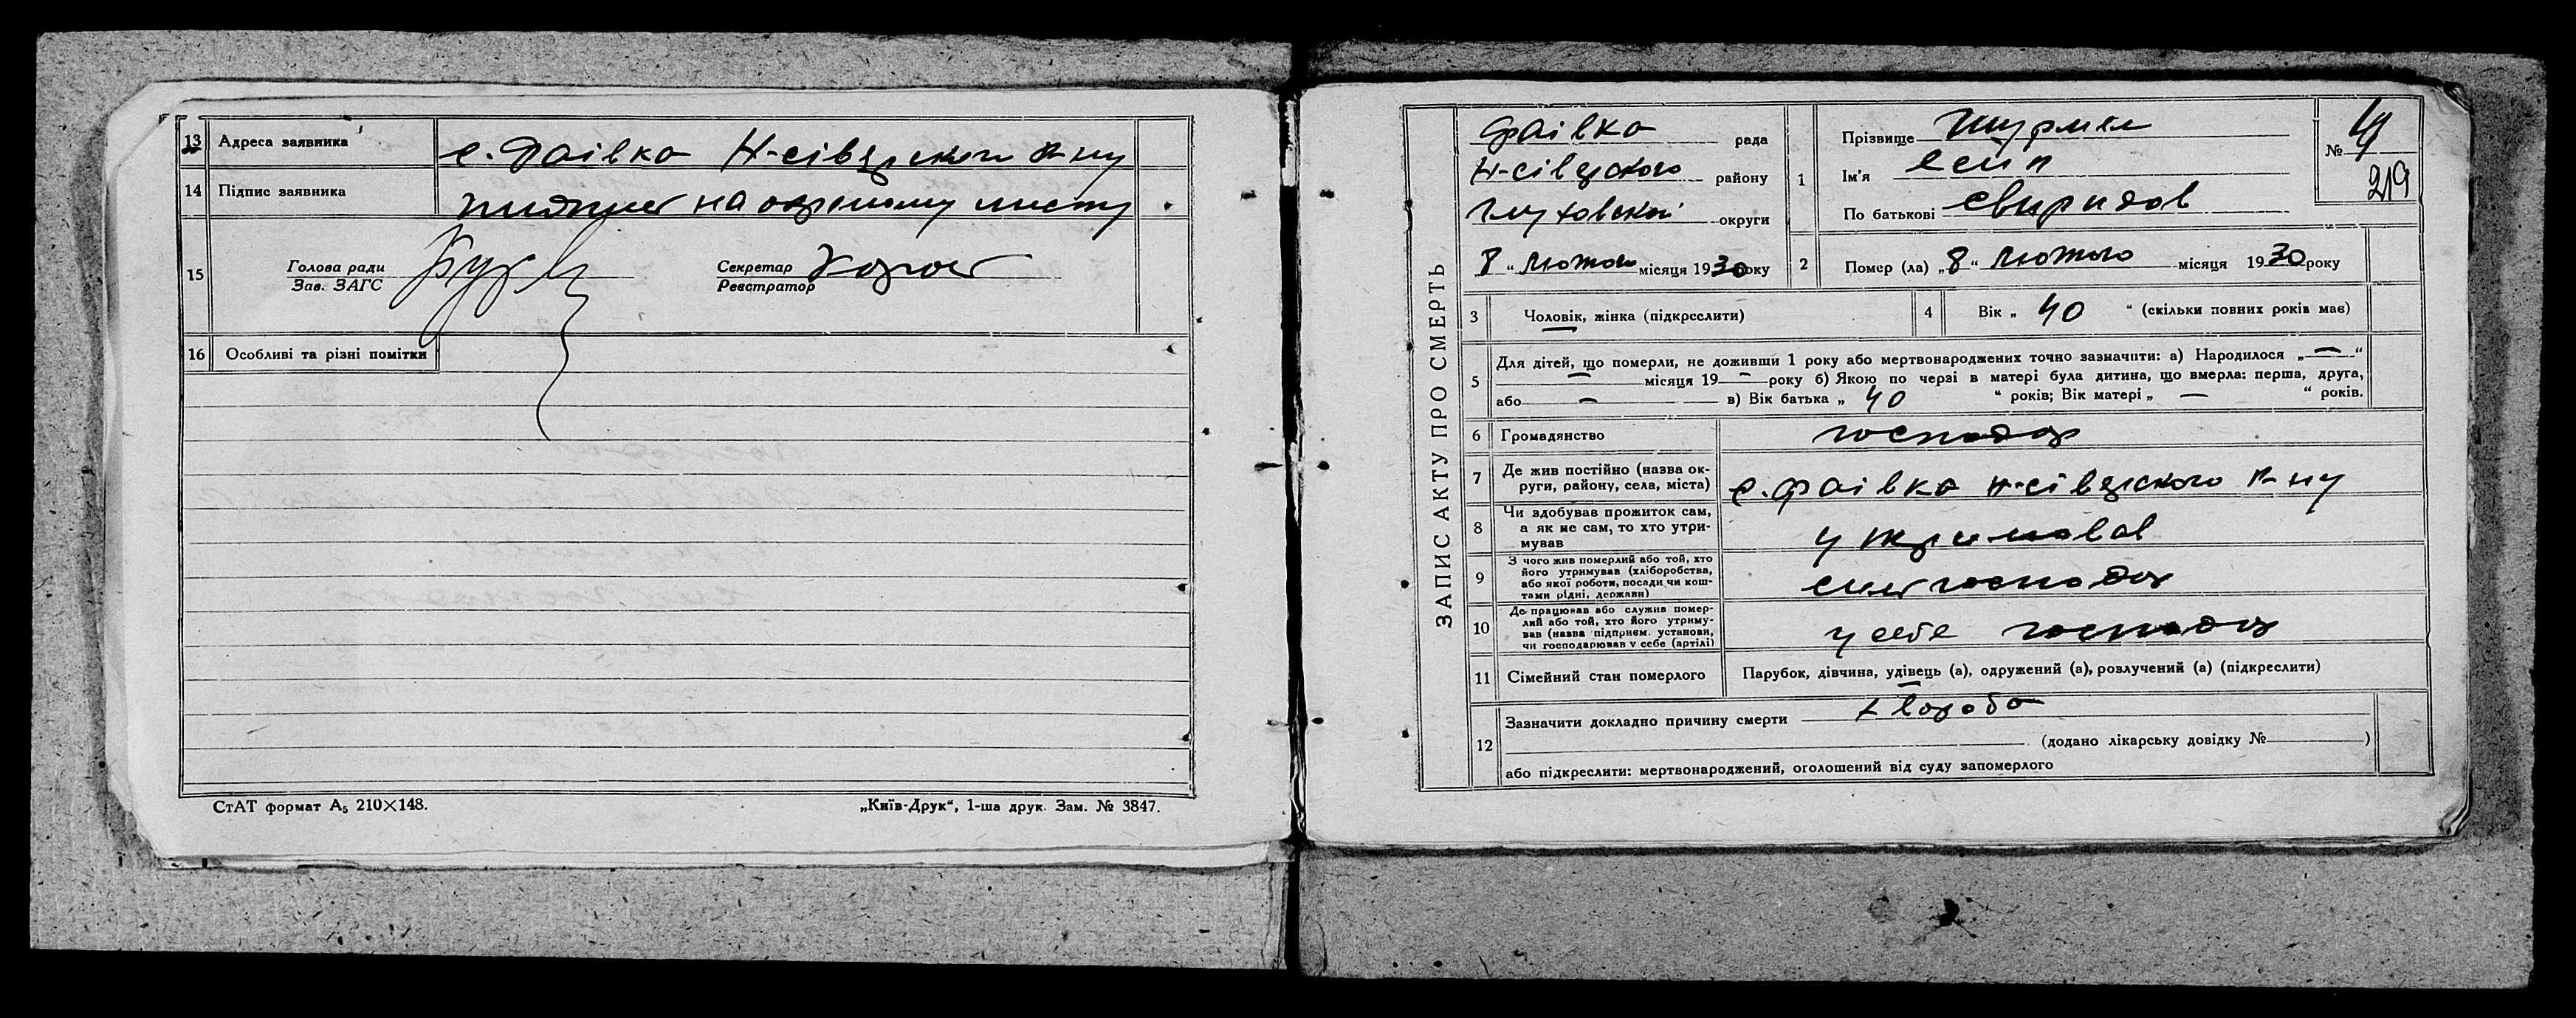 13 Адреса заявника с. Фаівка Н-сіверского р-ну
14 Підпис заявника на окремому листу
15 Голова ради
Зав. ЗАГС
Секретар
Реєстратор
16 Особливі та різні помітки
СтАТ формат А5 210×148.
„Київ-Друк“, 1-ша друк. Зам. № 3847.
ЗАПИС АКТУ ПРО СМЕРТЬ
Фаівка рада
Н-сіверского району
Глуховскоі округи
8 “ лютого місяця 1930 року
1 Прізвище
Ім'я Єсип
По батькові Свиридов
№
219
2 Помер (ла) „8“ лютого місяця 1930 року
3 Чоловік, жінка (підкреслити)
4 Вік „ 40 “ (скільки повних років має)
5 Для дітей, що померли, не доживши 1 року або мертвонароджених точно зазначити: а) Народилося „—“
— місяця 19 — року б) Якою по черзі в матері була дитина, що вмерла: перша, друга,
або — в) Вік батька „ 40 “ років; Вік матері „ — “ років.
6 Громадянство господар
7 Де жив постійно (назва ок-
руги, району, села, міста) с. Фаівка Н-сіверского р-ну
8 Чи здобував прожиток сам,
а як не сам, то хто утри-
мував утримовав
9 З чого жив померлий або той, хто
його утримував (хліборобства,
або якої роботи, посади чи кош-
тами рідні, держави) син господар
10 Де працював або служив помер-
лий або той, хто його утриму-
вав (назва підприєм. установи,
чи господарював у себе (артілі) у себе господар
11 Сімейний стан померлого Парубок, дівчина, удівець (а), одружений (а), розлучений (а) (підкреслити)
12 Зазначити докладно причину смерти хвороба
(додано лікарську довідку № )
або підкреслити: мертвонароджений, оголошений від суду запомерлого